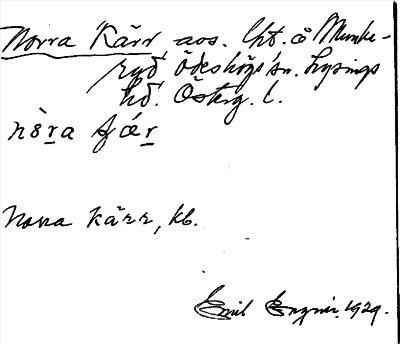 Norra Kärr, avs. lht. å Munke-
ryd, Ödeshögs sn. Lysings
hd. Österg. l.
nòra çær
Norra Kärr, kb.
Emil 1929.